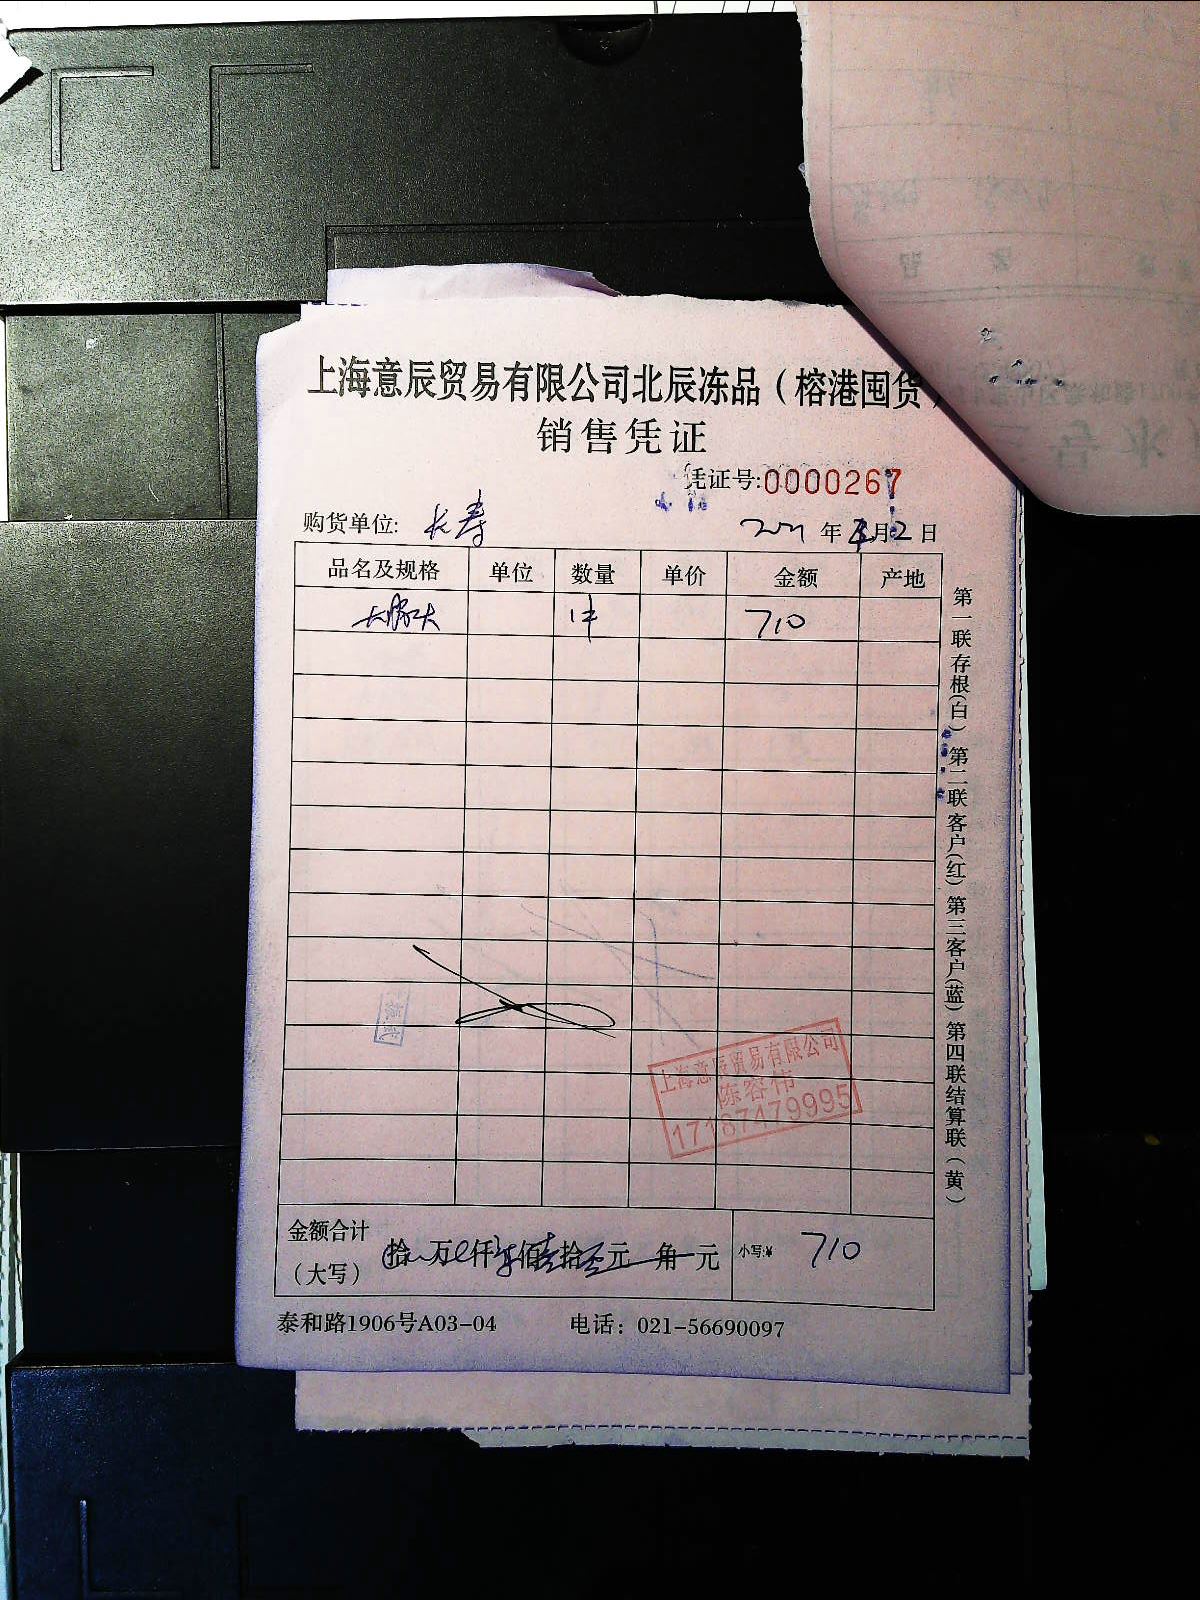 上海意辰贸易有限公司北辰冻品（榕港囤货）
销售凭证
凭证号:0000267
购货单位: 长寿 年 月2日
品名及规格 单位 数量 单价 金额 产地
1件 710
第一联存根(白) 第二联客户(红) 第三客户(蓝) 第四联结算联(黄)
上海意辰贸易有限公司
陈容伟
17167479995
金额合计
（大写） 拾 万 仟 佰 拾 元 角 元 小写:¥ 710
泰和路1906号A03-04 电话：021-56690097